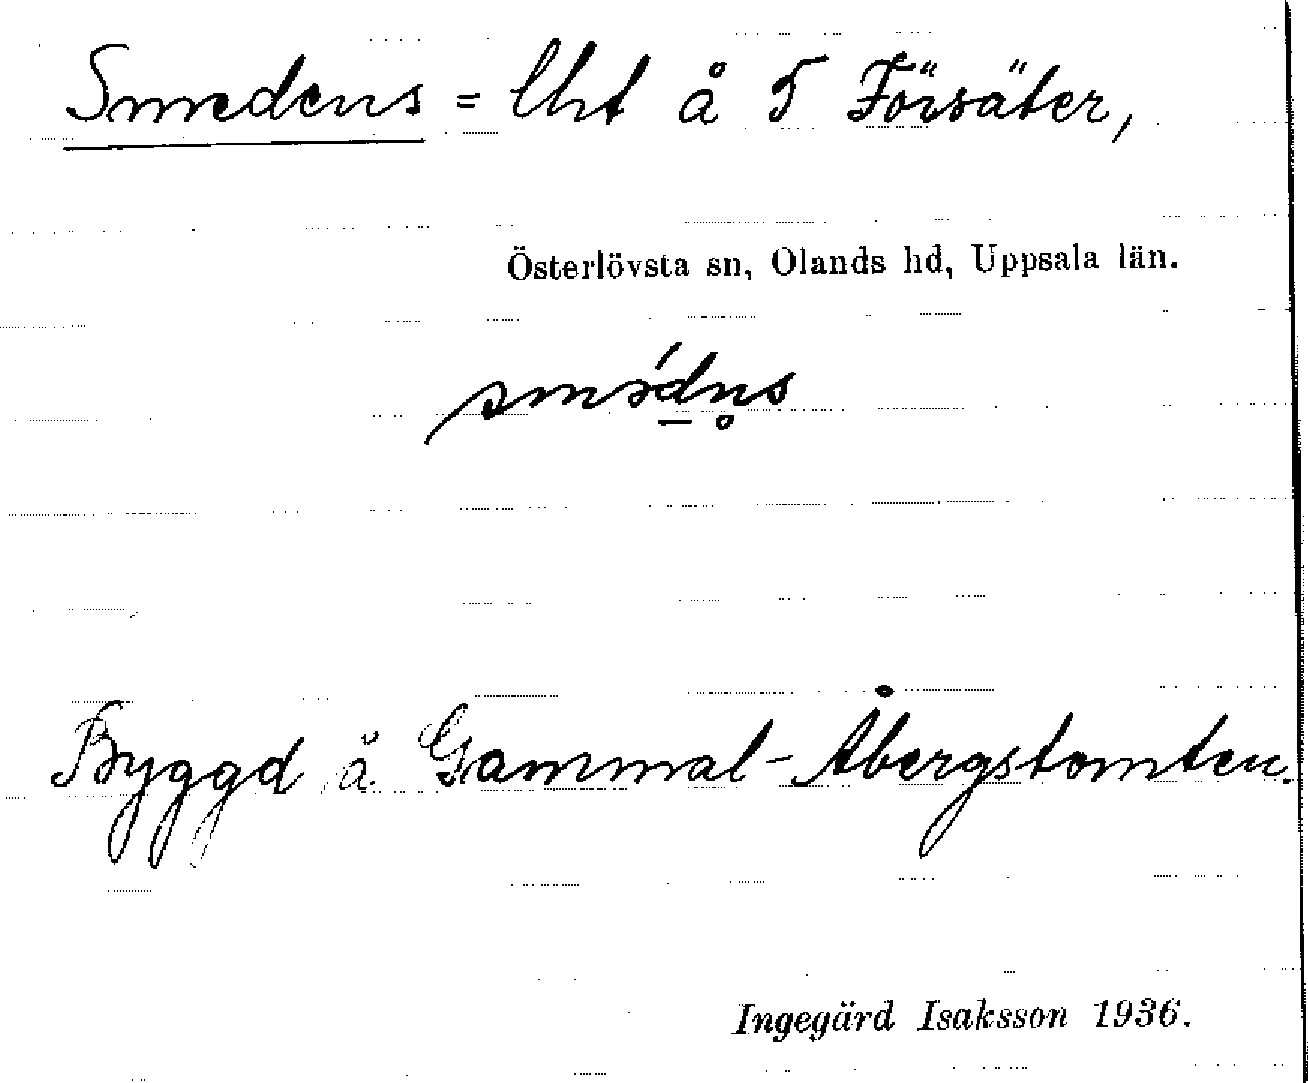 Smedens = lht å 5 Försäter,
Österlövsta sn, Olands hd, Uppsala län.
Byggd å Gammal-Åbergstomten.
Ingegärd Isaksson 1936.